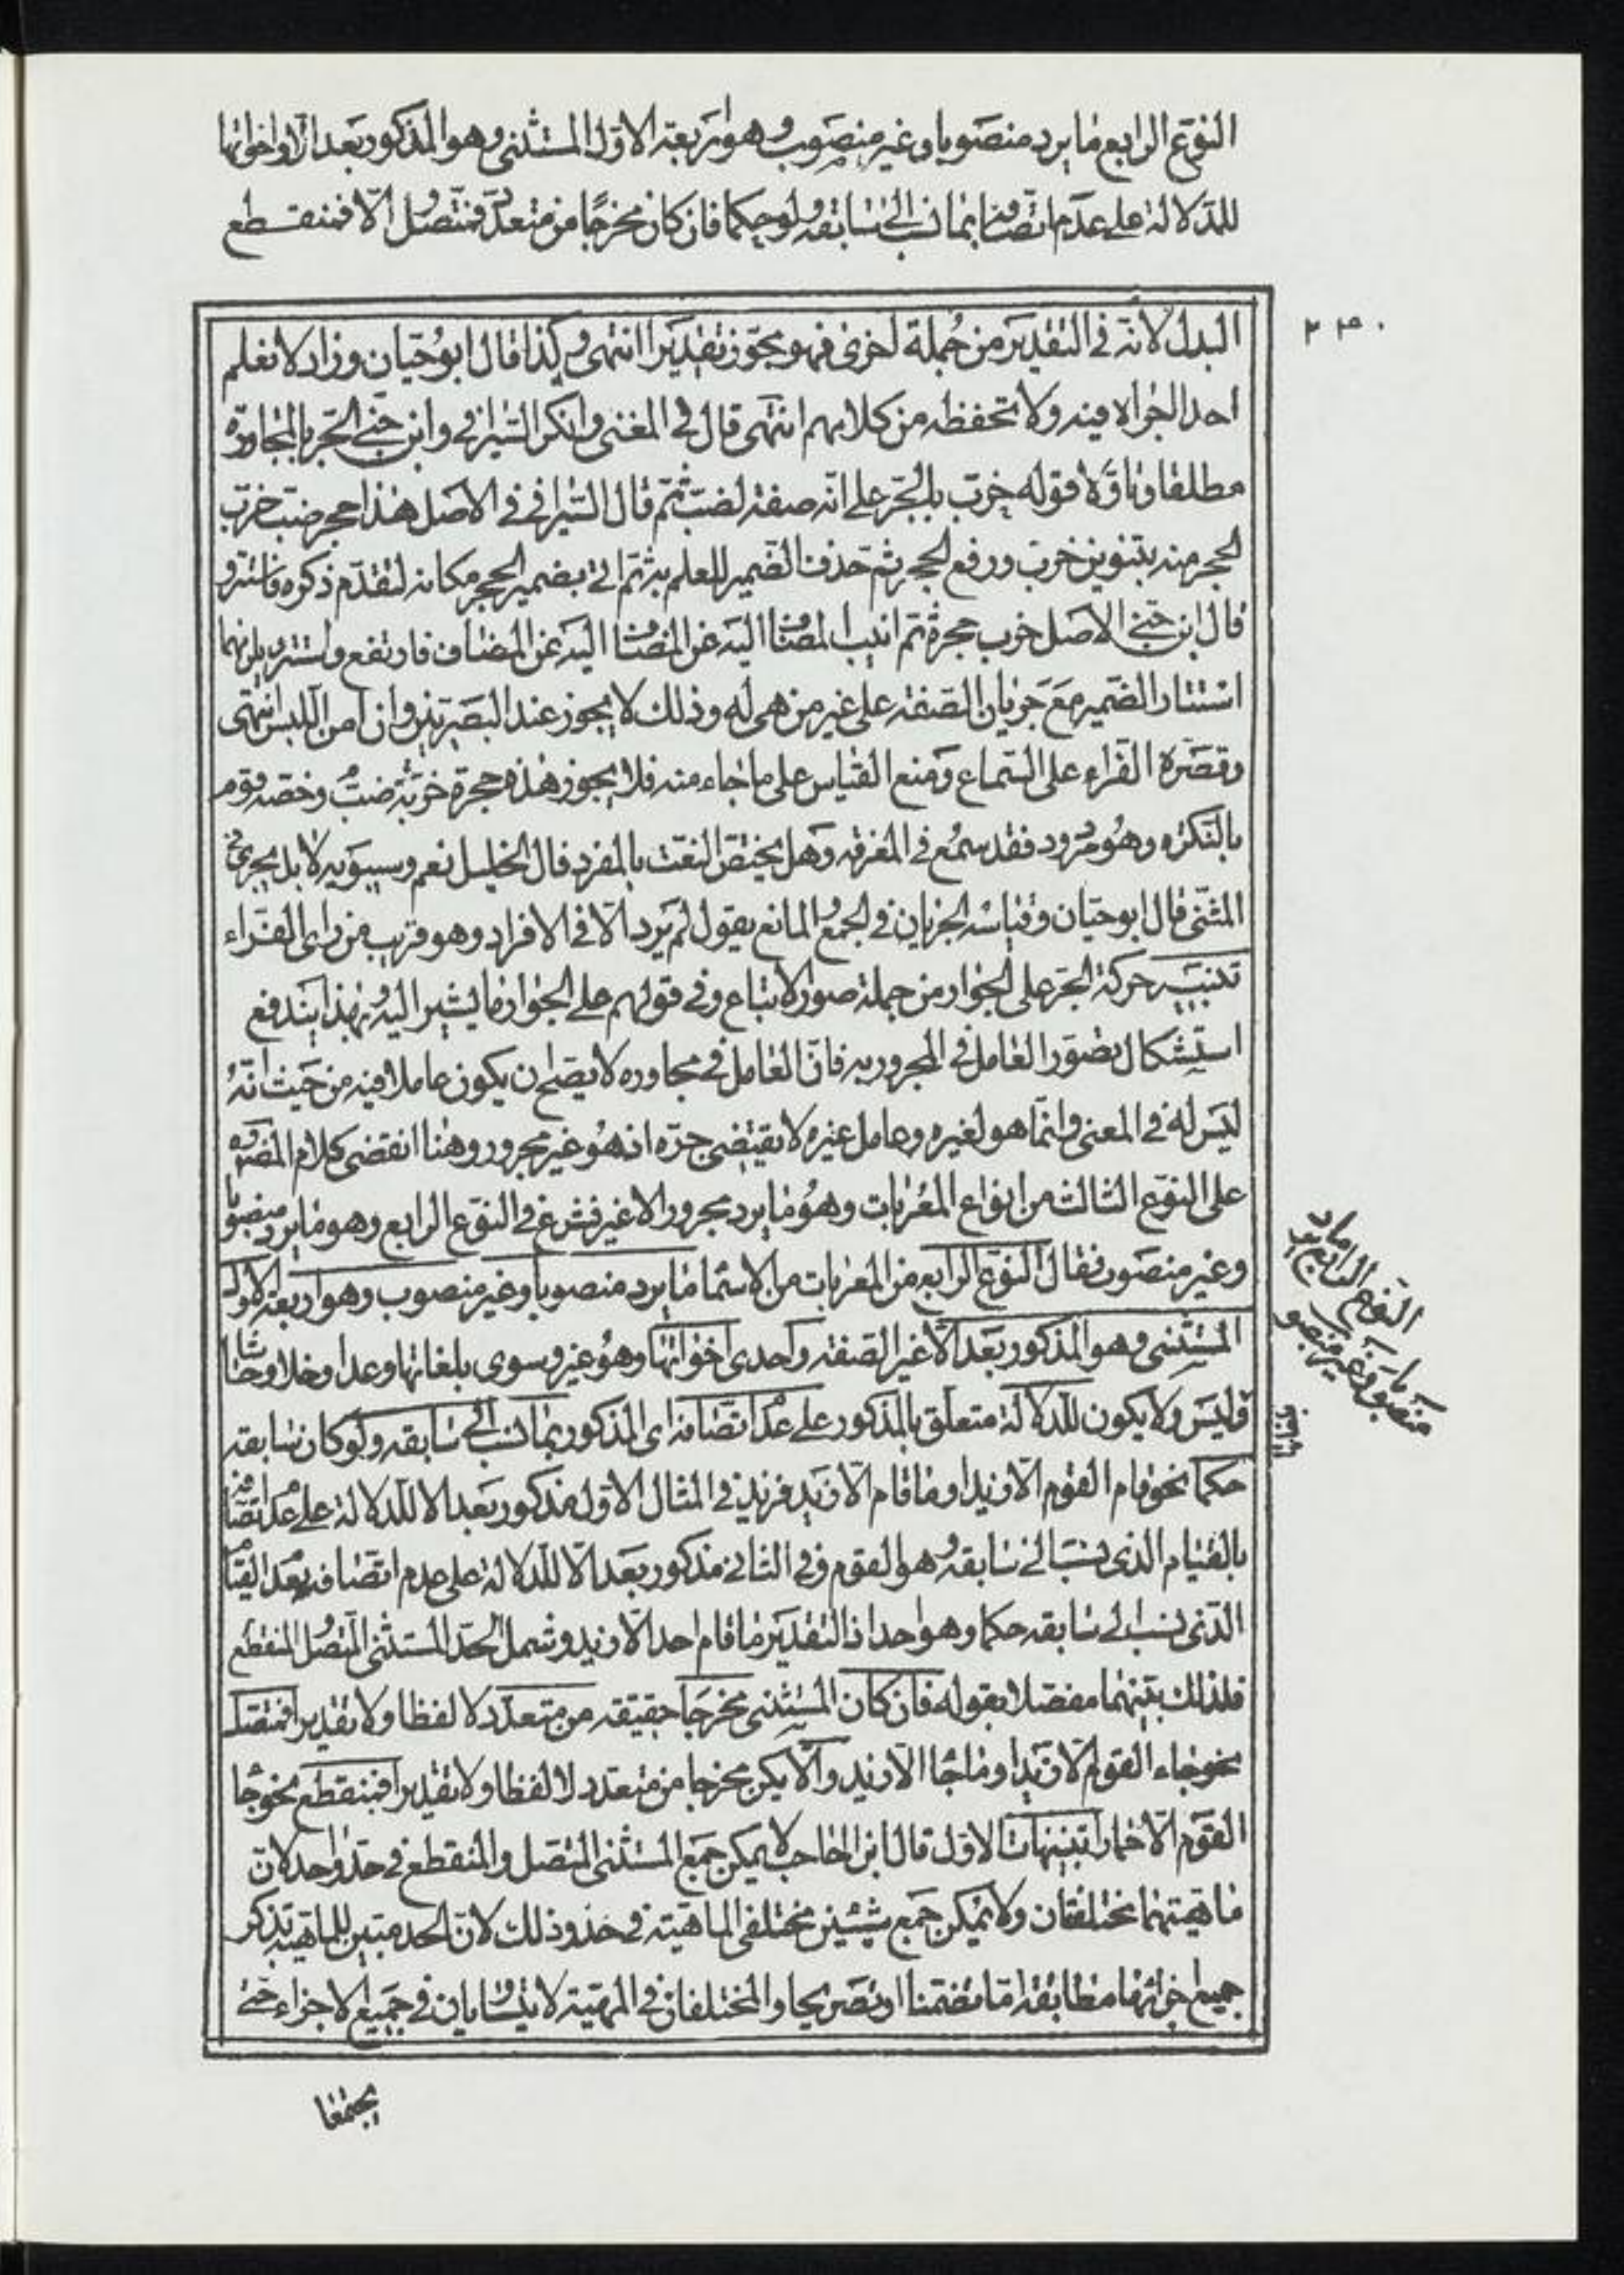 النوع الرابع ما يرد منصوبا وغير منصوب وهو اربعة الاول المستثنى وهو المذكور بعد الا واخواتها
للدلالة على عدم اتصافه بما نسب الى سابقه ولو حكما فان كان مخرجا من متعدد فمتصل والا فمنقطع
۲۳۰
البدل لانه فى التقدير من جملة اخرى فهو محوز تقديرا انتهى وكذا قال ابو حيان وزاد لا نعلم
احدا لجواه فيه ولا تحفظه من كلامهم انتهى قال فى المغنى وانكر السيرافى وابن جنى الجر بالمجاورة
مطلقا وتاولا قوله خرب بالجر على انه صفة لضب ثم قال السيرافى فى الاصل هذا حجر ضب خرب
الحجر منه بتنوين خرب ورفع الحجر ثم حذف الضمير للعلم به ثم اتى بضمير الحجر مكانه لتقدم ذكره فاستتر و
قال ابن جنى الاصل خرب حجره ثم انيب المضاف اليه عن المضاف فارتفع واستتر ويلزمهما
استتار الضمير مع جريان الصفة على غير من هى له وذلك لا يجوز عند البصريين وان امن اللبس انتهى
وقصره الفراء على السماع ومنع القياس على ما جاء منه فلا يجوز هذه حجرة ضب خربة وخصه قوم
بالنكره وهو مردود فقد سمع فى المعرفه وهل يختص النعت بالمفرد قال الخليل نعم وسيبويه لا بل يجرى فى
المثنى قال ابو حيان وقياسه الجريان فى الجمع والمانع يقول لم يرد الا فى الافراد وهو قريب من راى الفراء
تنبيه حركة الجر على الجوار من جملة صور الاتباع وفى قولهم على الجوار ما يشير اليه وبهذا يندفع
استشكال تصور العامل فى المجرور به فان العامل فى مجاوره لا يصح ان يكون عاملا فيه من حيث انه
ليس له فى المعنى وانما هو لغيره وعامل غيره لا يقتضى جره اذ هو غير مجرور وهنا انقضى كلام المص ره
على النوع الثالث من انواع المعربات وهو ما يرد مجرورا لا غير فشرع فى النوع الرابع وهو ما يرد منصوبا
وغير منصوب فقال النوع الرابع من المعربات من الاسماء ما يرد منصوبا وغير منصوب وهو اربعة الاول
المستثنى وهو المذكور بعد الا غير الصفة واحدى اخواتها وهو غير وسوى بلغاتها وعدا وخلا وحاشا
وليس ولا يكون للدلالة متعلق بالمذكور على عدم اتصافه اى المذكور بما نسب الى سابقه ولو كان سابقه
حكما نحو قام القوم الا زيدا وما قام الا زيد فزيد فى المثال الاول مذكور بعد الا للدلالة على عدم اتصافه
بالقيام الذى نسب الى سابقه وهو القوم وفى الثانى مذكور بعد الا للدلالة على عدم اتصافه بعدم القيام
الذى نسب الى سابقه حكما وهو احد اذ التقدير ما قام احد الا زيد وشمل الحد المستثنى المتصل والمنقطع
فلذلك بينهما مفصلا بقوله فان كان المستثنى مخرجا حقيقة من متعدد لا لفظا ولا تقديرا فمتصل
نحو جاء القوم الا زيدا وما جاء الا زيد والا يكن مخرجا من متعدد لا لفظا ولا تقديرا فمنقطع نحو جاء
القوم الا حمارا تنبيهات الاول قال ابن الحاجب لا يمكن جمع المستثنى المتصل والمنقطع فى حد واحد لان
ماهيتهما مختلفتان ولا يمكن جمع شيئين مختلفى الماهية فى حد وذلك لان الحد مبين للماهية بذكر
جميع اجزائها مطابقة اما تضمنا او تصريحا والمختلفان فى المهية لا يتساويان فى جميع الاجزاء حتى
النوع الرابع ما يرد
منصوبا وغير منصوب
يجتمعا